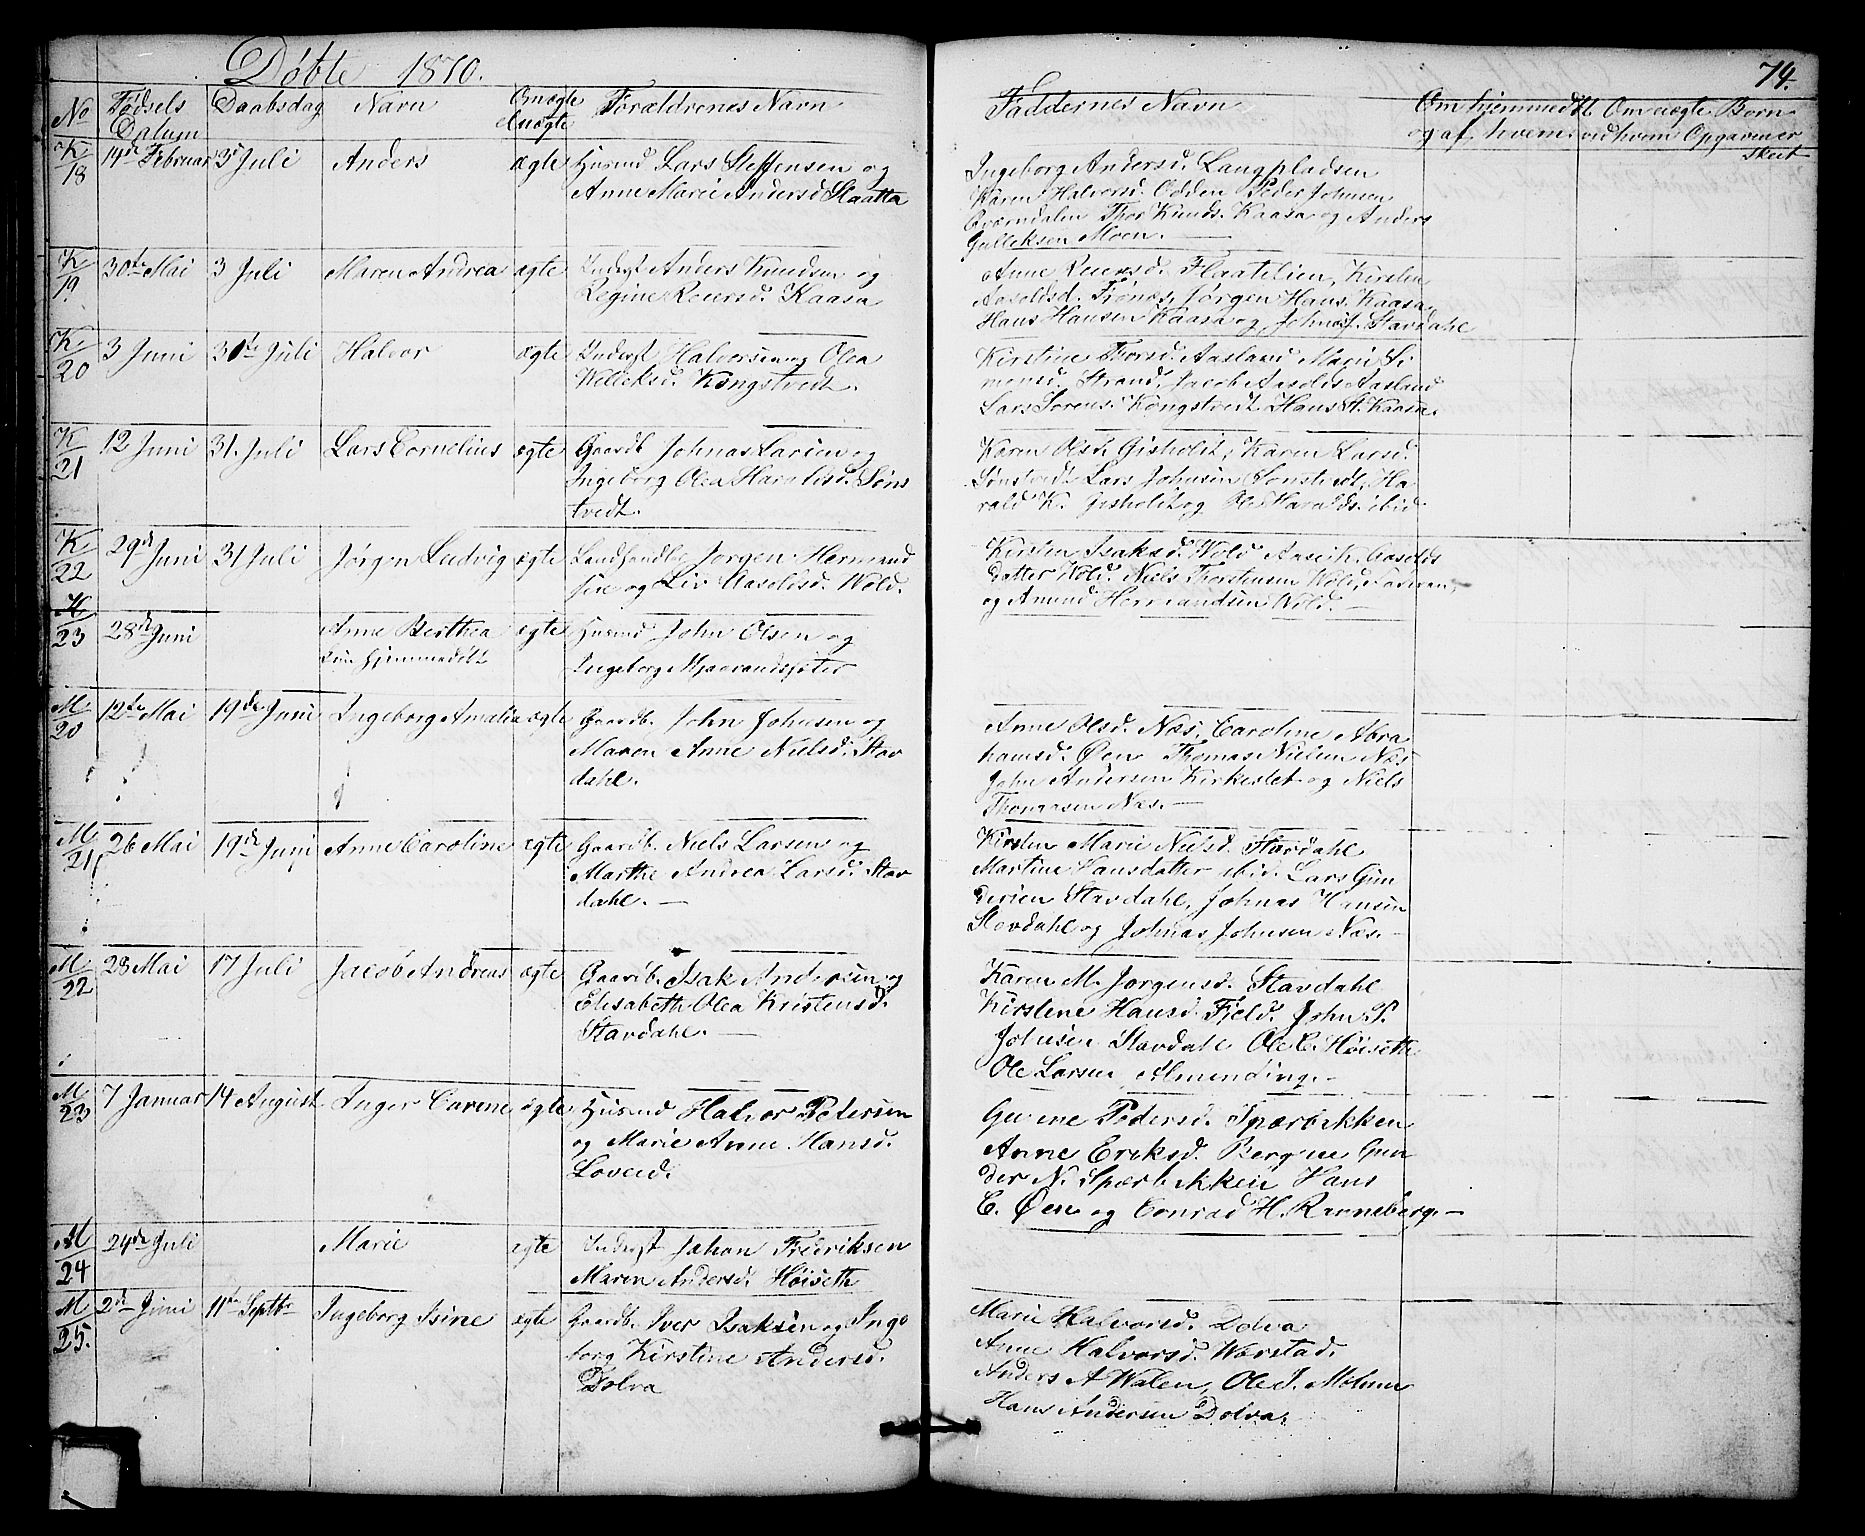 Døbte 1870.
No Fødsels Datum Daabsdag Navn Om ægte el. uægte Forældrenes Navn
K/18 14de Februar 3d Juli Anders ægte Husmd Lars Steffensen og
Anne Marie Andersd Slaatta
K/19 30te Mai 3 Juli Maren Andrea ægte Inderst Anders Knudsen og
Regine Reiersd. Kaasa
K/20 3 Juni 31te Juli Halvor ægte Inderst Halvorsen og Olea
Kongstvedt.
K/21 12 Juni 31. Juli Lars Cornelius ægte Gaardb. Johnas Larsen og
Ingeborg Olea Haraldsd. Søns
tvedt.
K/22 29de Juni 31 Juli Jørgen Ludvig ægte Landhandler Jørgen Hermand
sen og Liv Aasoldsd. Wold.
K/23 28de Juni Anne Berthea ægte Husmd John Olsen og
hjemmedøbt Ingeborg
M/20 12te Mai 19de Juni Ingeborg Amalia ægte Gaardb. John Johnsen og
Maren Anne Nielsd. Stav
dahl.
M/21 26 Mai 19de Juni Anne Caroline ægte Gaardb. Niels Larsen og
Marthe Andrea Larsd. Stav
dahl. —
M/22 28 Mai 17 Juli Jacob Andreas ægte Gaardb. Isak Andersen og
Elisabeth Olea Kristensd.
Stavdahl. —
M/23 7 Januar 14 August Inger Carene ægte Husmd Halvor Petersen
og Marie Anne Hansd.
Loveid.
M/24 24de Juli Marie ægte Inderst Johan Frederiksen
Maren Andersd. Høiseth
M/25. 2de Juni 11te Septbr Ingeborg Isine ægte Gaardb. Iver Isaksen og Inge
borg Kirstine Andersd.
Dolva
74.
Faddernes Navn Om hjemmedøbt og af hvem. Om uægte Børn ved hvem Opgaven er skeet
Ingeborg Andersd. Langpladsen
Karen Halvorsd. Odden Peder Johnsen
Thor Knuds. Kaasa og Anders
Gulleksen Moen. —
Anne Reiersd. Flaatelien, Kirsten
Aasoldsd. Jørgen Hans. Kaasa
Hans Hansen Kaasa og Stavdahl
Kirstine Thorsd. Aasland Maren Si
monsd. Strand, Jacob Aasolds Aasland
Lars Sørens. Kongstvedt, Hans H. Kaasa.
Karen Olsd. Gisholdt, Karen Larsd.
Sønstvedt. Lars Johnsen Sønstvedt, Ha
rald K. Gisholdt og Ole Haralds. ibid
Kirsten Isaksd. Wold Aasolds
datter Wold. Niels Thorstensen Wold,
og Amund Hermandsen Wold. —
Anne Olsd. Næs, Caroline Abra
hamsd. Øen Thomas Nielsen Næs
John Andersen Kirkeslet og Niels
Thomassen Næs. —
Kirsten Marie Nielsd. Stavdahl
Martine Hansdatter ibid. Lars Gun
dersen Stavdahl, Johnas Hansen
Stavdahl og Johnas Johnsen Næs. —
Karen M. Jørgensd. Stavdahl
Kirstine Hansd. Fjeld. John P.
Johnsen Stavdahl Ole C. Høiseth
Ole Larsen Almending. —
Pedersd. Spærbekken
Anne Eriksd. Bergene Gun
der N. Spærbekken Hans
C. Øen og Conrad H. Ranneberg. —
Marie Halvorsd. Dolva
Anne Halvorsd. Wærstad.
Anders A Walen, Ole J. Molunn
Hans Andersen Dolva.